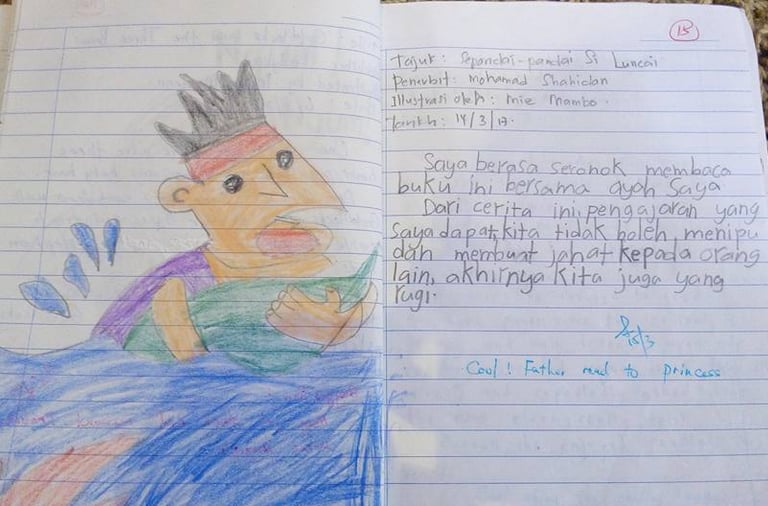 15
Tajuk : Sepandai-pandai Si Luncai
Penerbit : Mohamad Shahidan
Illustrasi oleh : Mie Mambo.
Tarikh : 14/3/17.
Saya berasa seronok membaca
buku ini bersama ayah saya
Dari cerita ini, pengajaran yang
saya dapat, kita tidak boleh menipu
dan membuat jahat kepada orang
lain, akhirnya kita juga yang
rugi.
15/3
Cool! Father read to princess